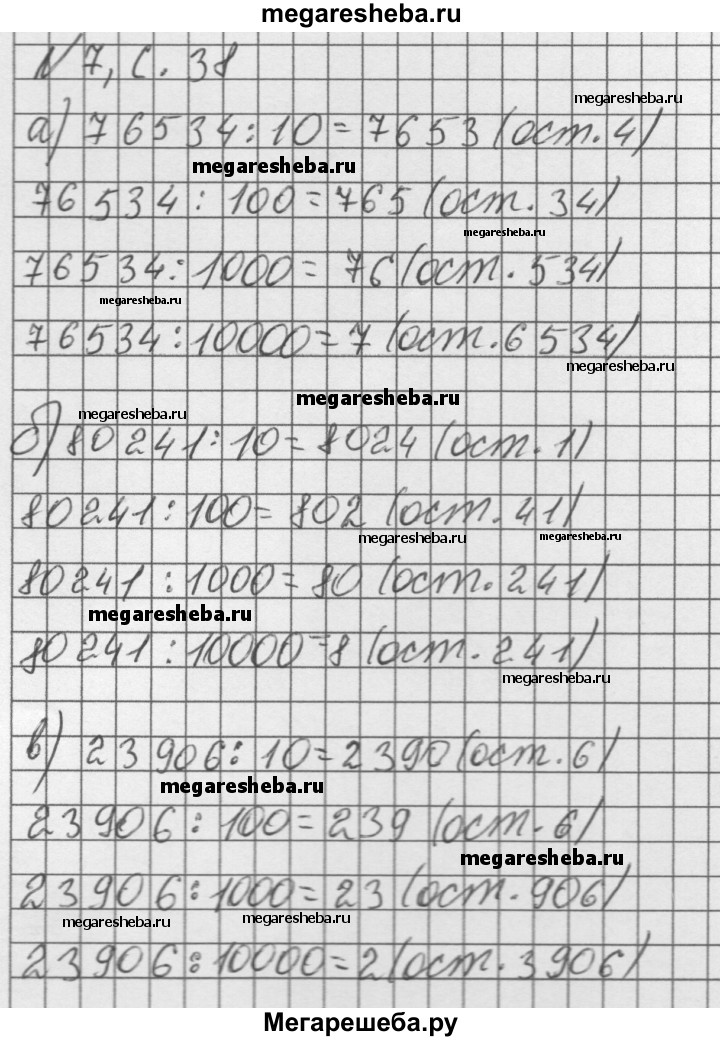 megaresheba.ru
N7, с. 38
megaresheba.ru
а) 76534:10=7653 (ост. 4)
megaresheba.ru
76534:100=765 (ост. 34)
megaresheba.ru
76534:1000=76 (ост. 534)
megaresheba.ru
76534:10000=7 (ост. 6534)
megaresheba.ru
megaresheba.ru
megaresheba.ru
б) 80241:10=8024 (ост. 1)
80241:100=802 (ост. 41)
megaresheba.ru
megaresheba.ru
80241:1000=80 (ост. 241)
megaresheba.ru
80241:10000=8 (ост. 241)
megaresheba.ru
в) 23906:10=2390 (ост. 6)
megaresheba.ru
23906:100=239 (ост. 6)
megaresheba.ru
23906:1000=23 (ост. 906)
megaresheba.ru
megaresheba.ru
23906:10000=2 (ост. 3906)
Мегарешеба.ру